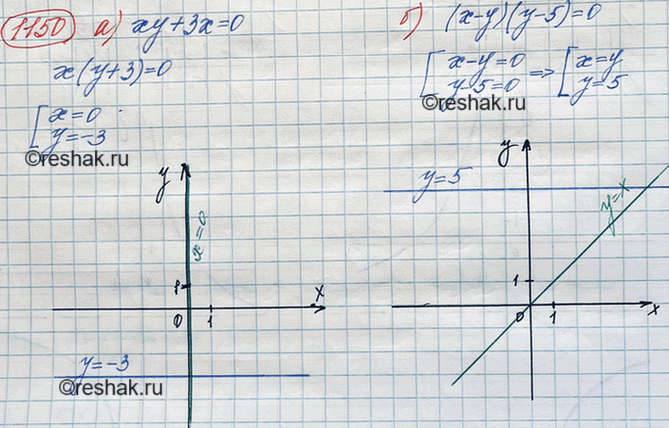 1150 а) xy+3x=0
x(y+3)=0
[x=0
y=-3
©reshak.ru
y
x=0
1
x
0 1
y=-3
©reshak.ru
б) (x-y)(y-5)=0
[x-y=0
y-5=0 => [x=y
y=5
©reshak.ru
y
y=5
y=x
1
0 1
x